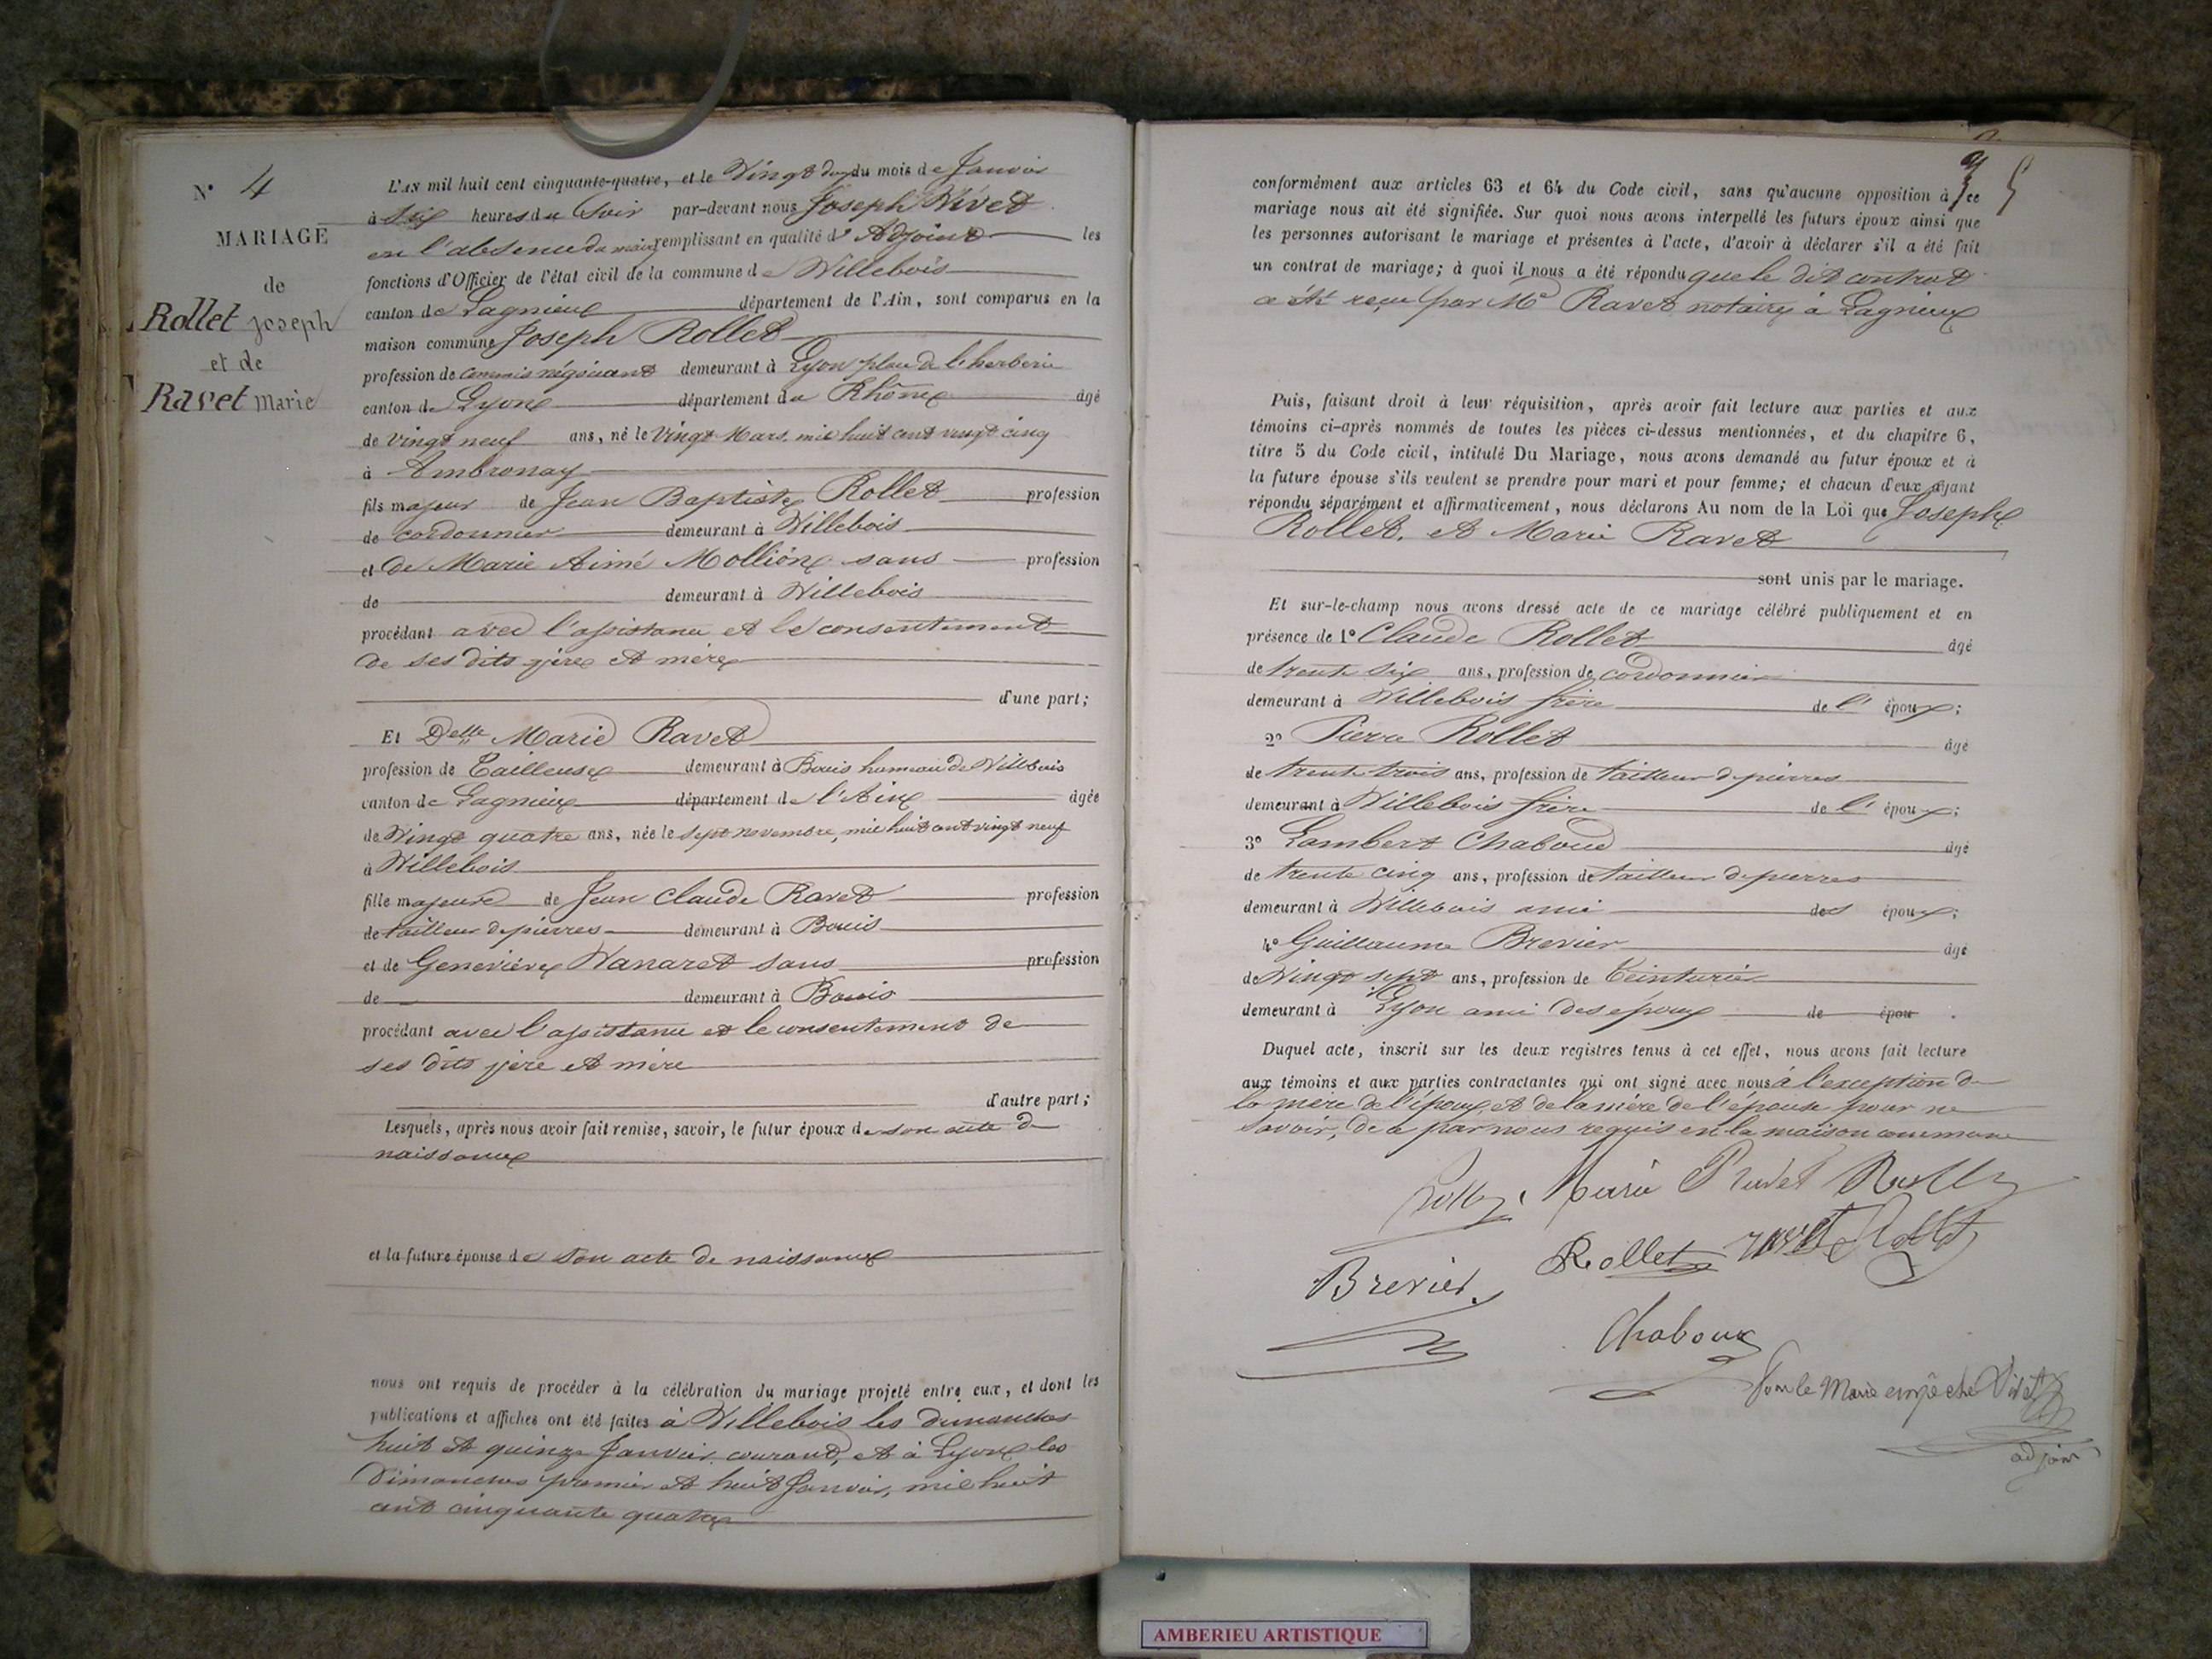 N° 4
MARIAGE
de
Rollet Joseph
et de
Ravet Marie
L'AN mil huit cent cinquante-quatre, et le Vingt deux du mois de Janvier
à six heures du Soir par-devant nous Joseph Vivet
en l'absence du maire remplissant en qualité d' Adjoint les
fonctions d'Officier de l'état civil de la commune de Villebois
canton de Lagnieux département de l'Ain, sont comparus en la
maison commune Joseph Rollet
profession de commis négociant demeurant à Lyon place de l'herberie
canton de Lyon département du Rhône âgé
de vingt neuf ans, né le vingt Mars mil huit cent vingt cinq
à Ambronay
fils majeur de Jean Baptiste Rollet profession
de cordonnier demeurant à Villebois
et de Marie Aimé Mollion sans profession
de demeurant à Villebois
procédant avec l'assistance et le consentement
de ses dits père et mère
d'une part;
Et Delle Marie Ravet
profession de Tailleuse demeurant à Bouis hameau de Villebois
canton de Lagnieux département de l'Ain âgée
de Vingt quatre ans, née le sept novembre, mil huit cent vingt neuf
à Villebois
fille majeure de Jean Claude Ravet profession
de tailleur de pierres demeurant à Bouis
et de Geneviève Vanaret sans profession
de demeurant à Bouis
procédant avec l'assistance et le consentement de
ses dits père et mère
d'autre part;
Lesquels, après nous avoir fait remise, savoir, le futur époux de son acte de
naissance
et la future épouse de son acte de naissance
nous ont requis de procéder à la célébration du mariage projeté entre eux, et dont les
publications et affiches ont été faites à Villebois les dimanches
huit et quinze Janvier courant, et à Lyon les
Dimanches premier et huit Janvier, mil huit
cent cinquante quatre
conformément aux articles 63 et 64 du Code civil, sans qu'aucune opposition à ce
mariage nous ait été signifiée. Sur quoi nous avons interpellé les futurs époux ainsi que
les personnes autorisant le mariage et présentes à l'acte, d'avoir à déclarer s'il a été fait
un contrat de mariage; à quoi il nous a été répondu que le dit contrat
a été reçu par Me Ravet notaire à Lagnieux
Puis, faisant droit à leur réquisition, après avoir fait lecture aux parties et aux
témoins ci-après nommés de toutes les pièces ci-dessus mentionnées, et du chapitre 6,
titre 5 du Code civil, intitulé Du Mariage, nous avons demandé au futur époux et à
la future épouse s'ils veulent se prendre pour mari et pour femme; et chacun d'eux ayant
répondu séparément et affirmativement, nous déclarons Au nom de la Loi que Joseph
Rollet, et Marie Ravet
sont unis par le mariage.
Et sur-le-champ nous avons dressé acte de ce mariage célébré publiquement et en
présence de 1° Claude Rollet âgé
de trente six ans, profession de cordonnier
demeurant à Villebois frère de l' époux;
2° Pierre Rollet âgé
de trente trois ans, profession de tailleur de pierres
demeurant à Villebois frère de l' époux;
3° Lambert Chaboud âgé
de trente cinq ans, profession de tailleur de pierres
demeurant à Villebois ami des époux;
4° Guillaume Brevier âgé
de Vingt sept ans, profession de Teinturier
demeurant à Lyon ami des époux de épou .
Duquel acte, inscrit sur les deux registres tenus à cet effet, nous avons fait lecture
aux témoins et aux parties contractantes qui ont signé avec nous à l'exception de
la mère de l'époux, et de la mère de l'épouse pour ne
savoir, de ce par nous requis en la maison commune
Marie Ravet
Rollet
Brevier
Chaboux
Pour le Maire empêché Vivet
adjoint
AMBERIEU ARTISTIQUE